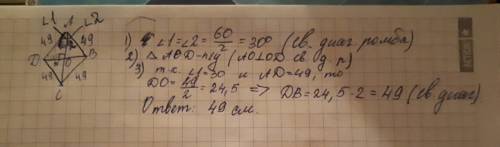 ∠1 ∠2
A
49 49
D O B
49 49
C
1) ∠1=∠2= 60/2 = 30° (св. диаг ромба)
2) △ АОД-п/у (АО⊥ОД св. д. р)
3) т.к. ∠1=30 и АД=49, то
DO= 49/2 = 24,5 => DB = 24,5 · 2 = 49 (св. диаг)
Ответ: 49 см.